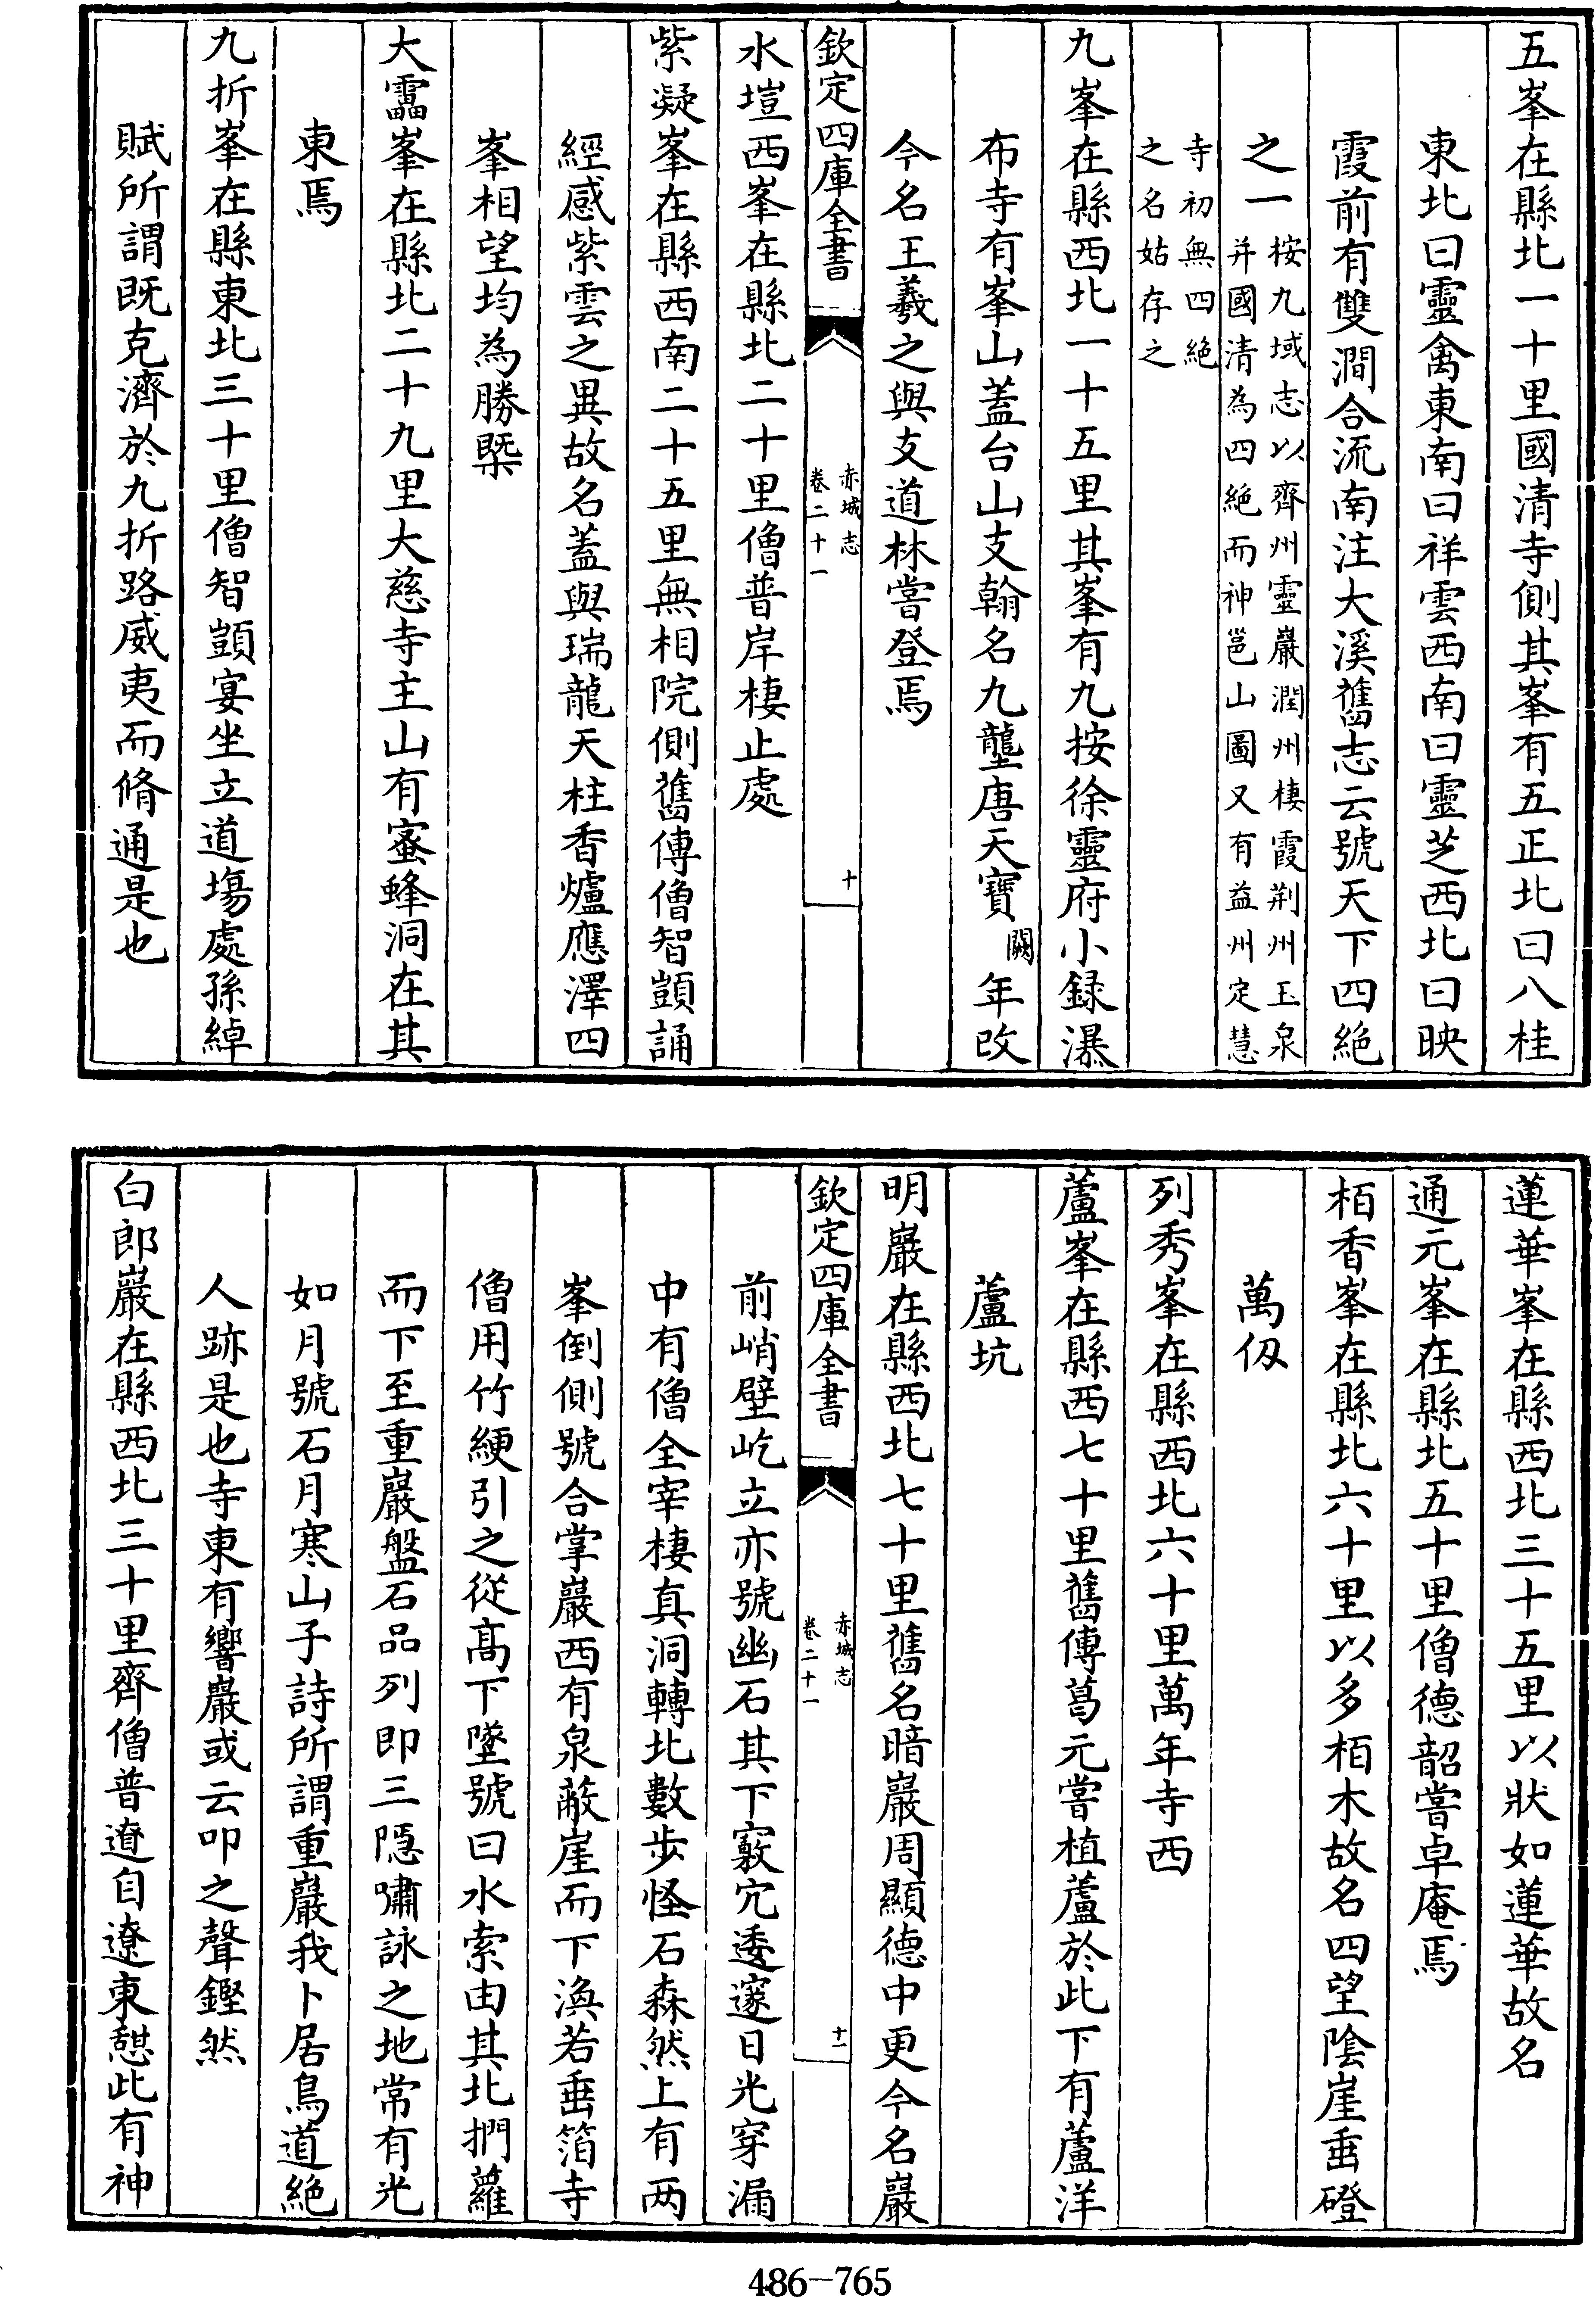 五峯在縣北一十里國清寺側其峯有五正北曰八桂
東北曰靈禽東南曰祥雲西南曰靈芝西北曰映
霞前有雙澗合流南注大溪舊志云號天下四絕
之一按九域志以齊州靈巖潤州棲霞荆州玉泉
并國清為四絕而神邕山圖又有益州定慧
寺初無四絕
之名姑存之
九峯在縣西北一十五里其峯有九按徐靈府小録瀑
布寺有峯山蓋台山支翰名九壟唐天寶闕年改
今名王羲之與支道林嘗登焉
欽定四庫全書
赤城志
卷二十一
十
水塏西峯在縣北二十里僧普岸棲止處
紫凝峯在縣西南二十五里無相院側舊傳僧智顗誦
經感紫雲之異故名蓋與瑞龍天柱香爐應澤四
峯相望均為勝槩
大靁峯在縣北二十九里大慈寺主山有蜜蜂洞在其
東焉
九折峯在縣東北三十里僧智顗宴坐立道塲處孫綽
賦所謂既克濟於九折路威夷而脩通是也
蓮華峯在縣西北三十五里以狀如蓮華故名
通元峯在縣北五十里僧德韶嘗卓庵焉
栢香峯在縣北六十里以多栢木故名四望陰崖垂磴
萬仭
列秀峯在縣西北六十里萬年寺西
蘆峯在縣西七十里舊傳葛元嘗植蘆於此下有蘆洋
蘆坑
明巖在縣西北七十里舊名暗巖周顯德中更今名巖
欽定四庫全書
赤城志
卷二十一
十一
前峭壁屹立亦號幽石其下竅穴逶邃日光穿漏
中有僧全宰棲真洞轉北數步怪石森然上有两
峯倒側號合掌巖西有泉蔽崖而下渙若垂箔寺
僧用竹綆引之從髙下墜號曰水索由其北捫蘿
而下至重巖盤石品列即三隱嘯詠之地常有光
如月號石月寒山子詩所謂重巖我卜居鳥道絶
人跡是也寺東有響巖或云叩之聲鏗然
白郎巖在縣西北三十里齊僧普遼自遼東憇此有神
486-765